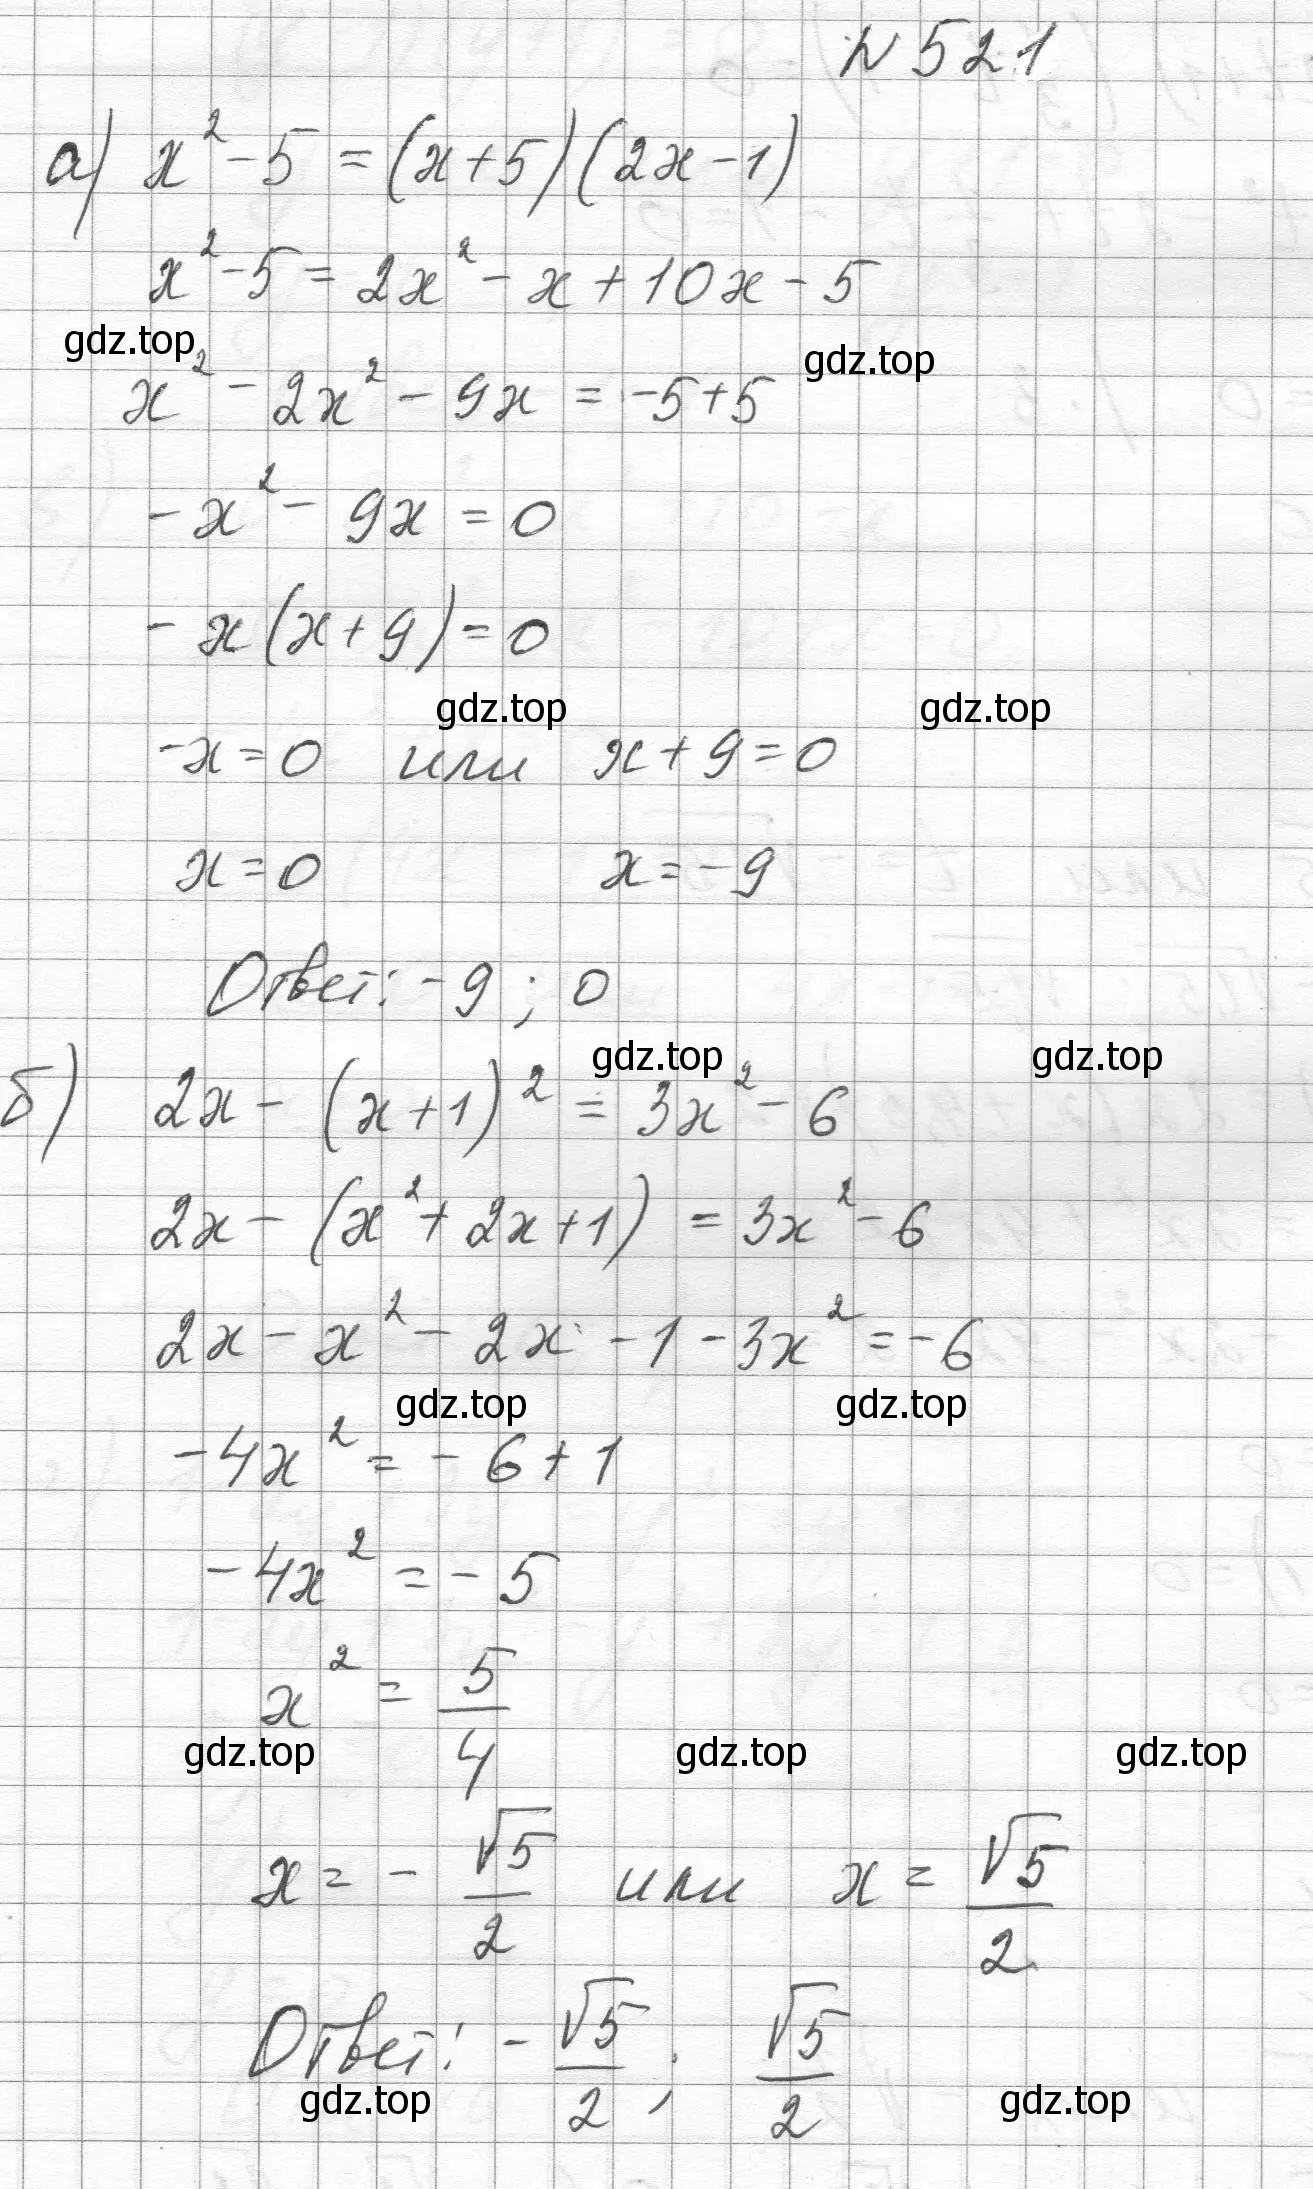 № 521
а) x² - 5 = (x + 5)(2x - 1)
x² - 5 = 2x² - x + 10x - 5
gdz.top
gdz.top
x² - 2x² - 9x = -5 + 5
- x² - 9x = 0
- x(x + 9) = 0
gdz.top gdz.top
-x = 0 или x + 9 = 0
x = 0 x = -9
Ответ: -9 ; 0
gdz.top gdz.top
б) 2x - (x + 1)² = 3x² - 6
2x - (x² + 2x + 1) = 3x² - 6
2x - x² - 2x - 1 - 3x² = -6
gdz.top gdz.top
-4x² = - 6 + 1
-4x² = - 5
x² = 5/4
gdz.top gdz.top gdz.top
x = - √5/2 или x = √5/2
Ответ: - √5/2 ; √5/2
gdz.top gdz.top